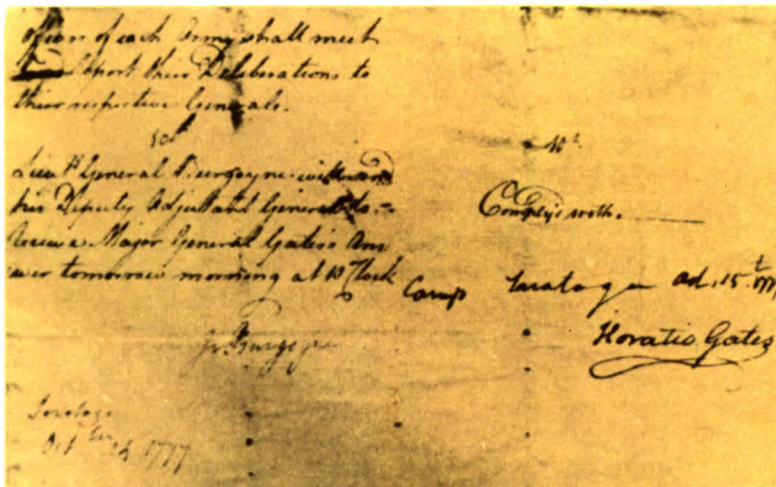 officers of each Army shall meet
& Report their Deliberations to
their respective Generals.
10th
Lieut General Burgoyne will send
his Deputy Adjutant General to
Receive Major General Gates's Ans
wer tomorrow morning at 10 Clock
J. Burgoyne
Saratoga
Octber 14 1777
10th
Complyd with.
Camp Saratoga Oct. 15t 1777
Horatio Gates